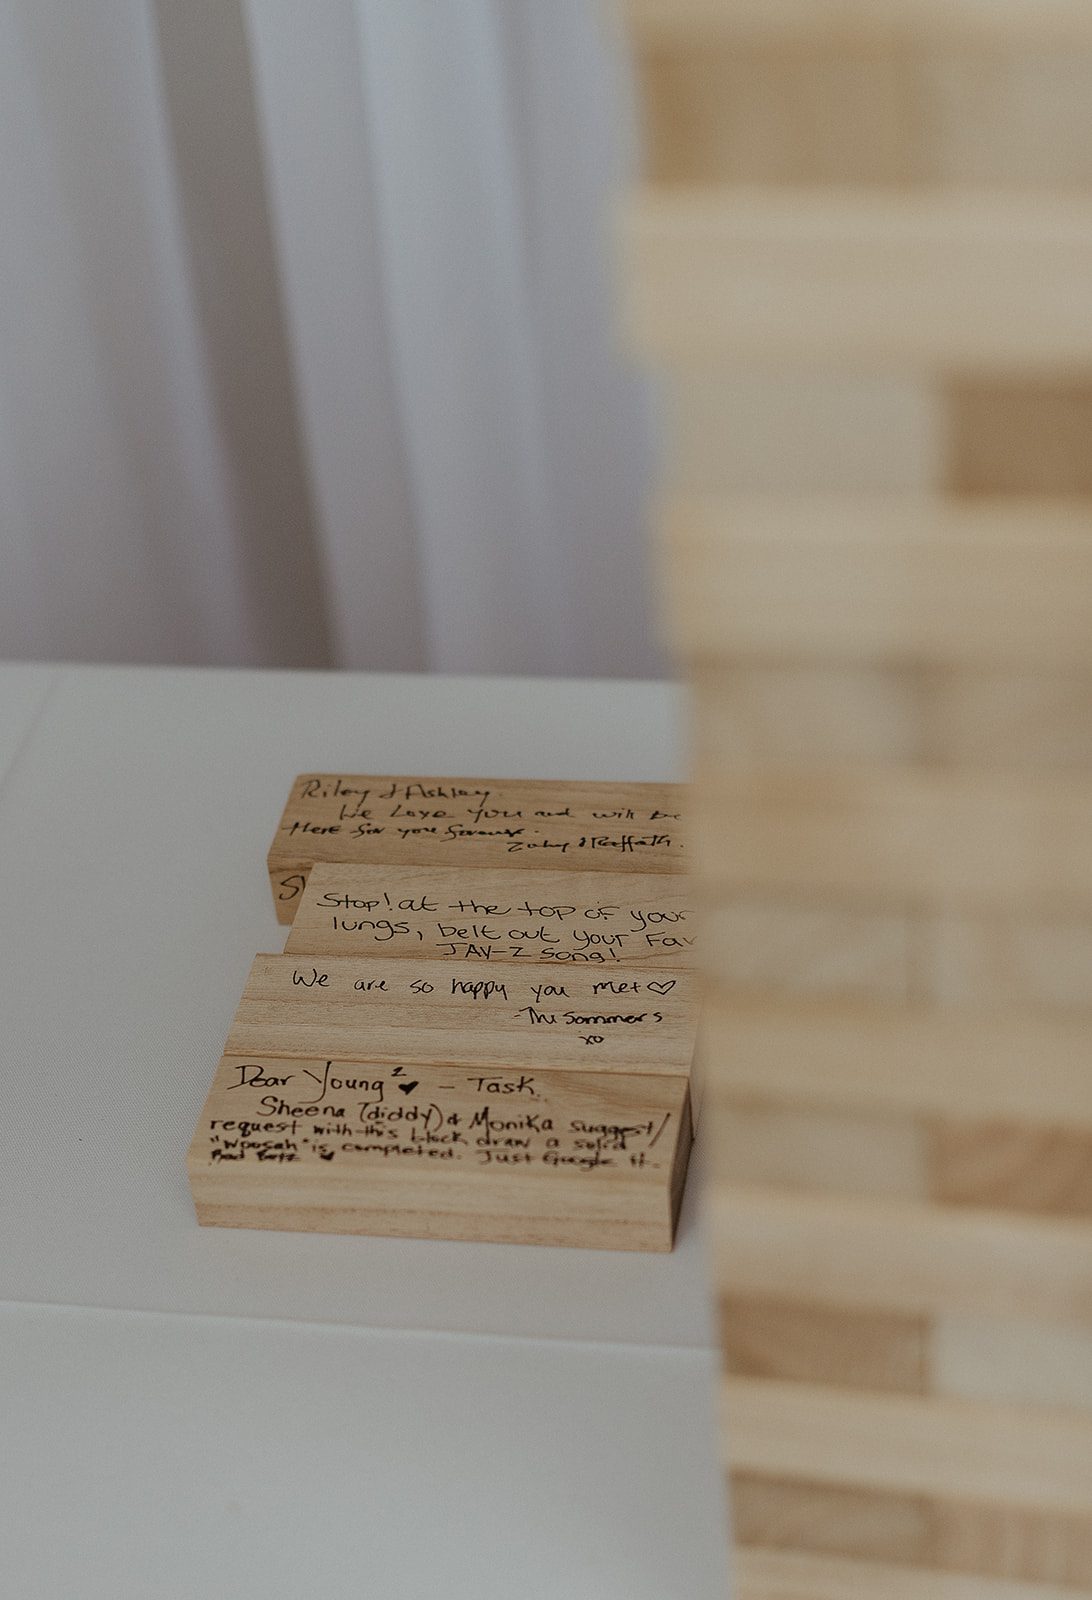 Riley & Ashley
We Love you and will be
Here for you forever.
Stop! at the top of your
lungs, belt out your Fav
JAY-Z song!
We are so happy you met ♡
-The Sommers
xo
Dear Young² ♥ - Task
Sheena (diddy) & Monika suggest/
request with this block draw a solid
"Woosah" is completed. Just Google it.